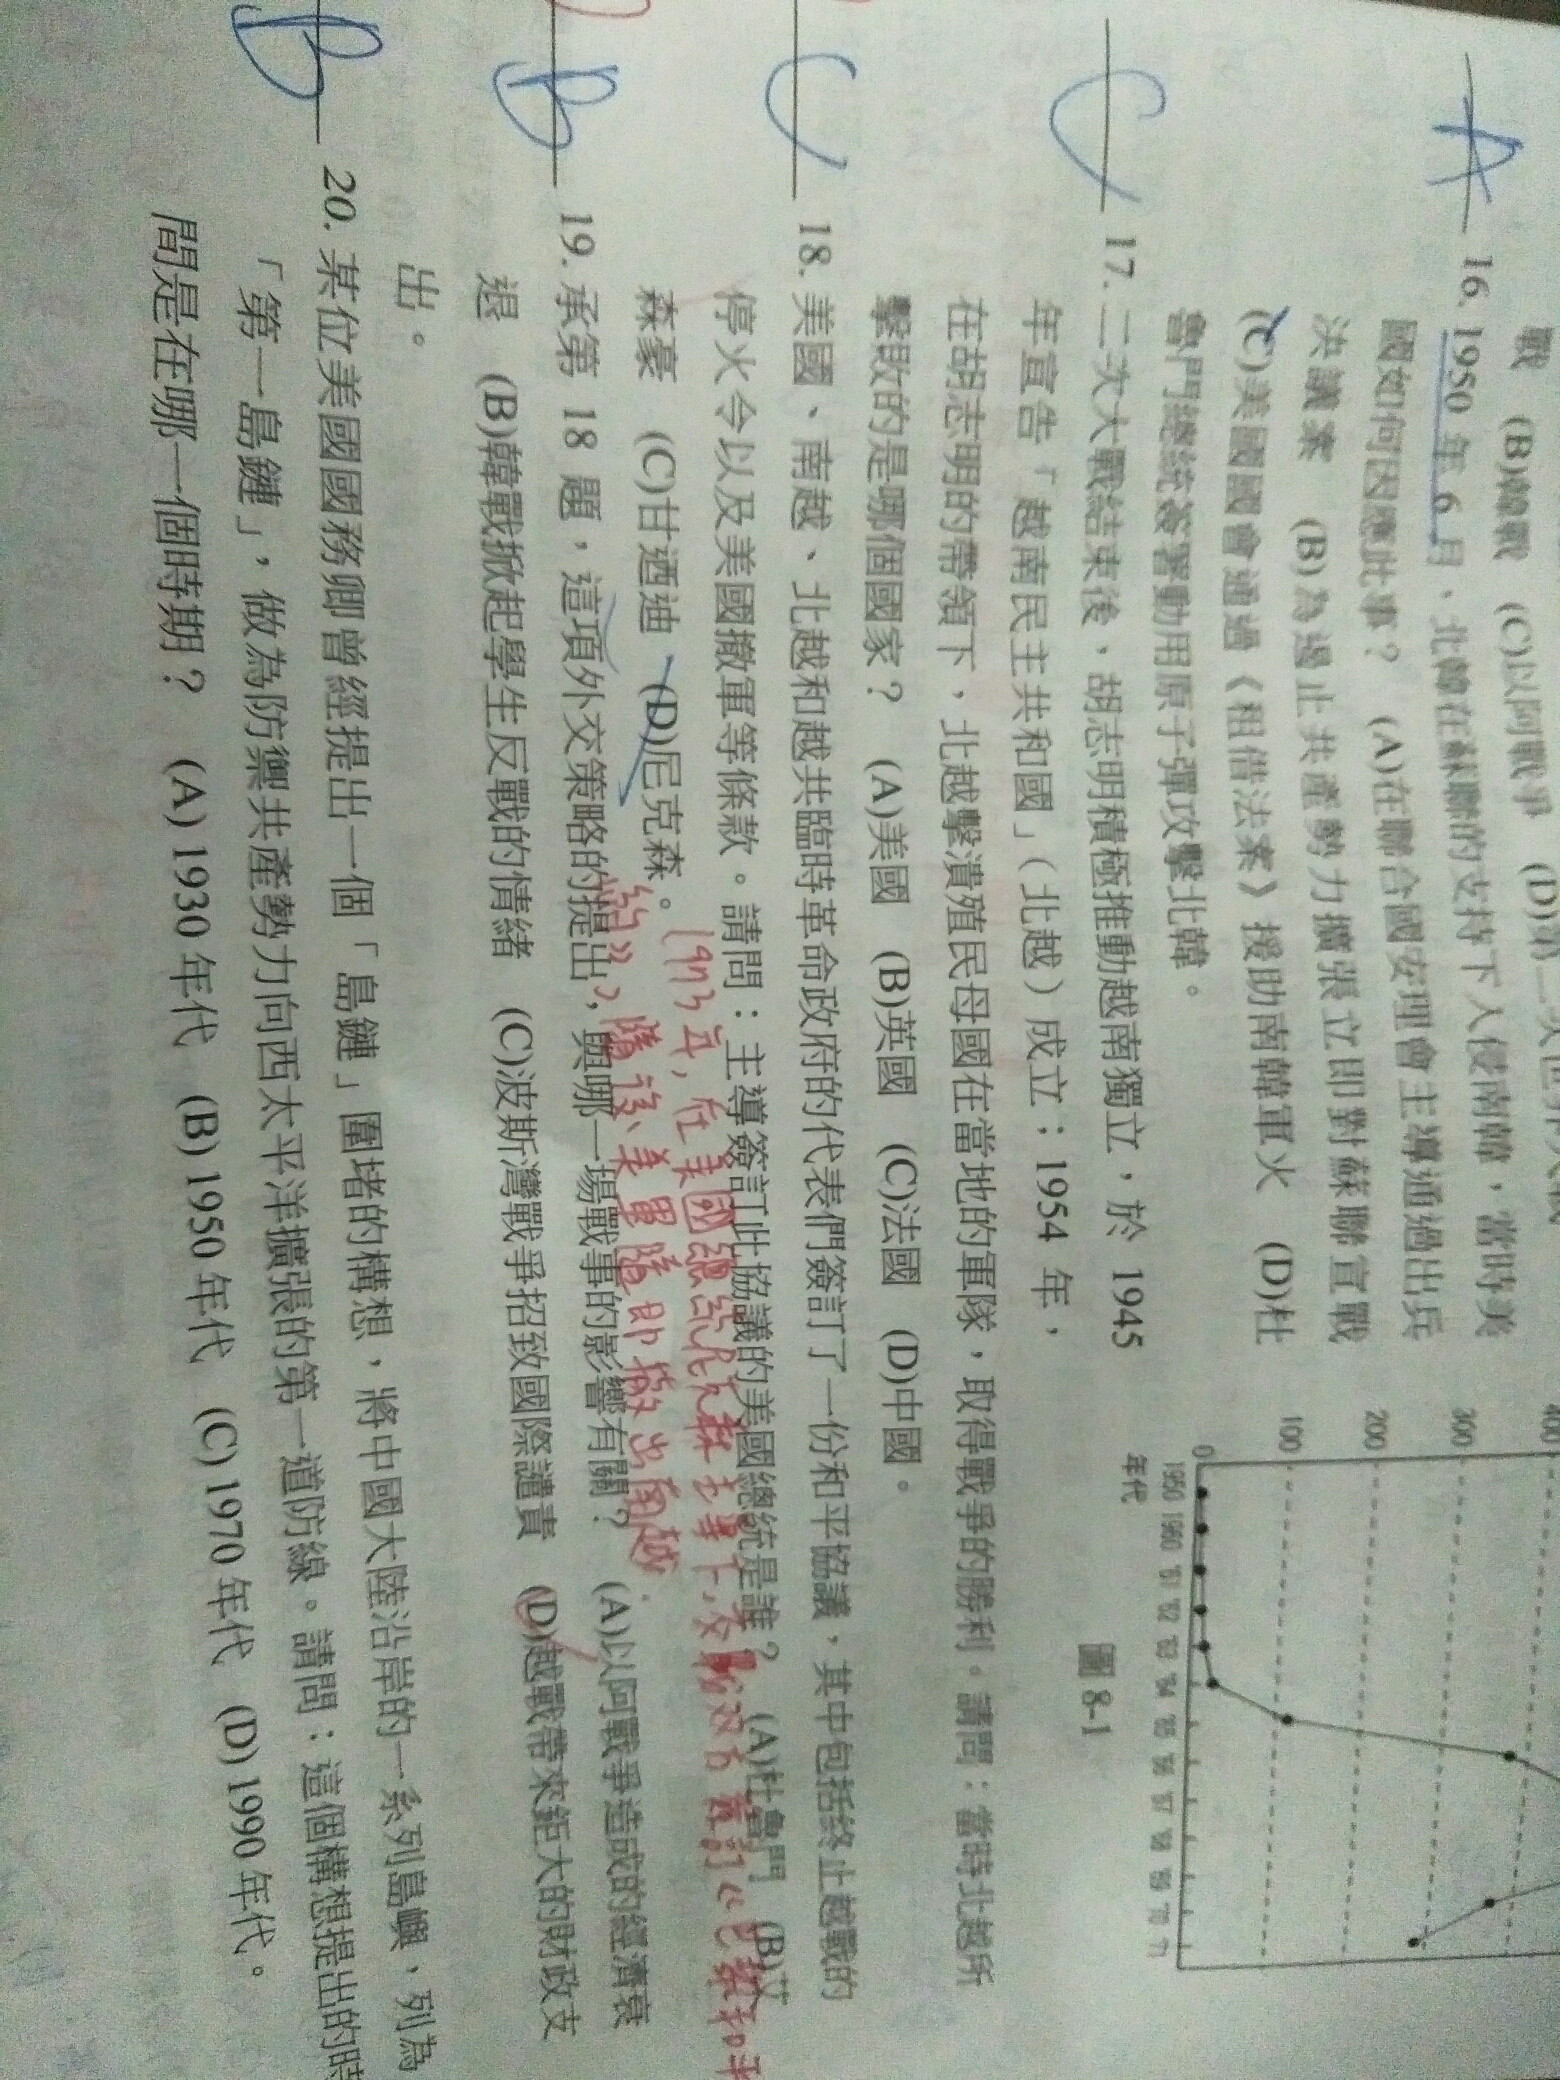 戰 (B)韓戰 (C)以阿戰爭 (D)第二次世界大戰
A 16. 1950 年 6 月、北韓在蘇聯的支持下入侵南韓，當時美
國如何因應此事？ (A)在聯合國安理會主導通過出兵
決議案 (B)為遏止共產勢力擴張立即對蘇聯宣戰
(C)美國國會通過《租借法案》援助南韓軍火 (D)杜
魯門總統簽署動用原子彈攻擊北韓。
400
300
200
100
0
1950 1960 '61 '62 '63 '64 '65 '66 '67 '68 '69 '70 '71
年代
圖 8-1
C 17. 二次大戰結束後，胡志明積極推動越南獨立，於 1945
年宣告「越南民主共和國」（北越）成立；1954 年，
在胡志明的帶領下，北越擊潰殖民母國在當地的軍隊，取得戰爭的勝利。請問：當時北越所
擊敗的是哪個國家？ (A)美國 (B)英國 (C)法國 (D)中國。
C 18. 美國、南越、北越和越共臨時革命政府的代表們簽訂了一份和平協議，其中包括終止越戰的
停火令以及美國撤軍等條款。請問：主導簽訂此協議的美國總統是誰？ (A)杜魯門 (B)艾
森豪 (C)甘迺迪 (D)尼克森。
1973年，在美國總統尼克森主導下，交戰双方簽訂《巴黎和平
約》，隨後美軍隨即撤出南越.
B 19. 承第 18 題，這項外交策略的提出，與哪一場戰事的影響有關？ (A)以阿戰爭造成的經濟衰
退 (B)韓戰掀起學生反戰的情緒 (C)波斯灣戰爭招致國際譴責 (D)越戰帶來鉅大的財政支
出。
B 20. 某位美國國務卿曾經提出一個「島鏈」圍堵的構想，將中國大陸沿岸的一系列島嶼，列為
「第一島鏈」，做為防禦共產勢力向西太平洋擴張的第一道防線。請問：這個構想提出的時
間是在哪一個時期？ (A) 1930 年代 (B) 1950 年代 (C) 1970 年代 (D) 1990 年代。